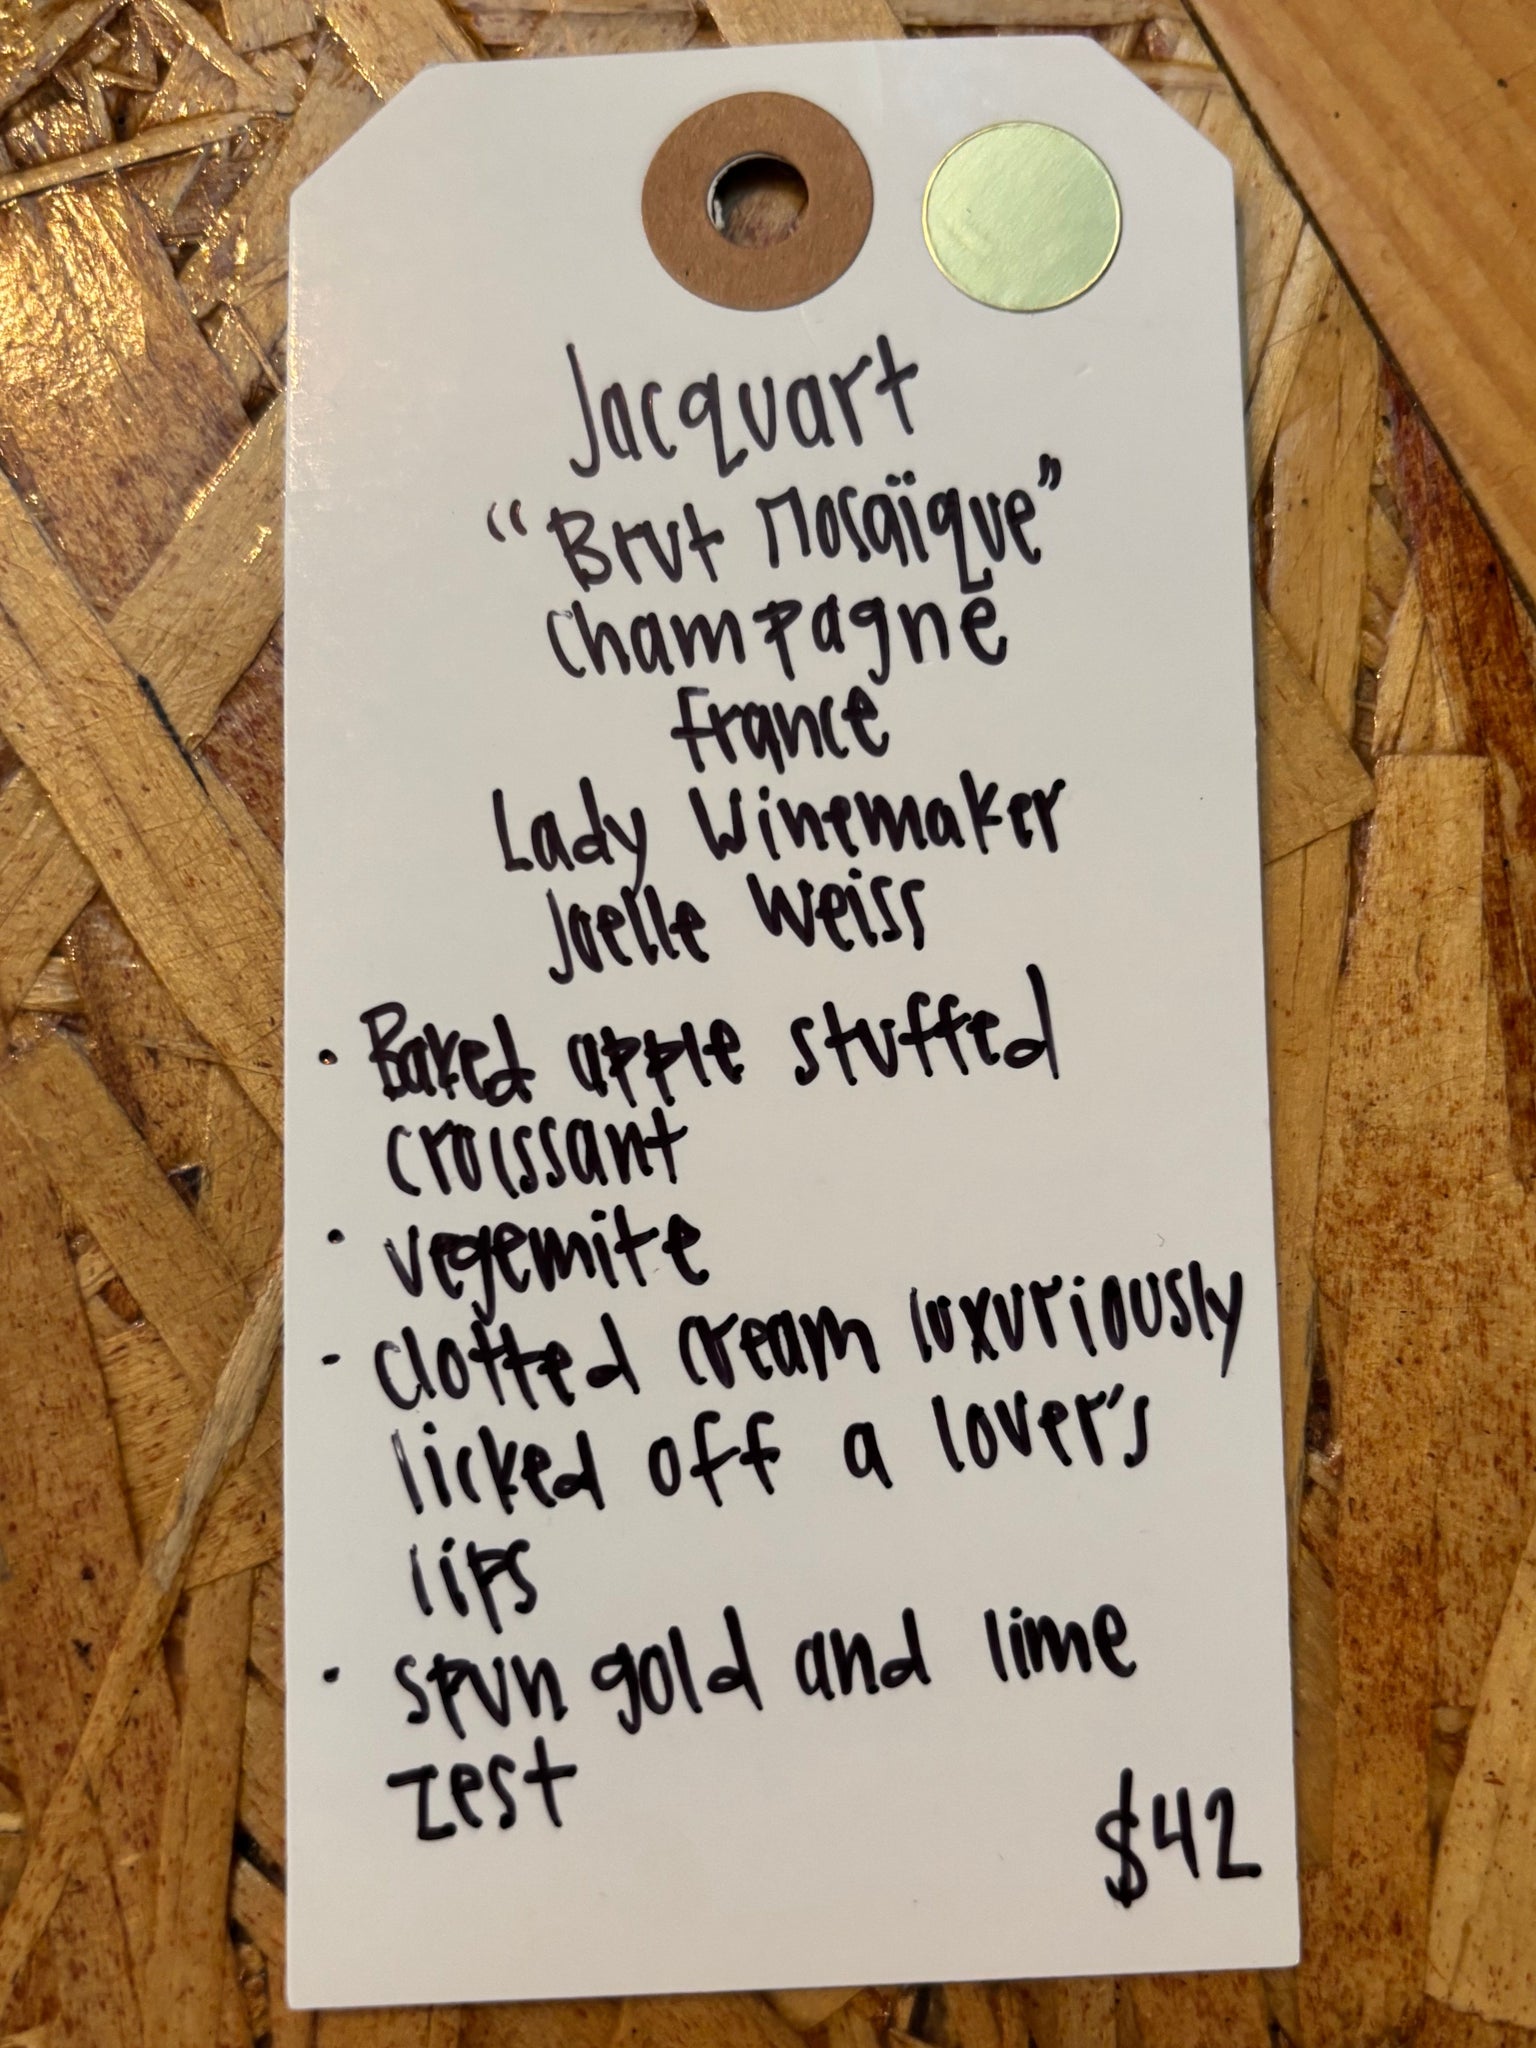 Jacquart
"Brut Mosaïque"
Champagne
France
Lady Winemaker
Joelle Weiss
• Baked apple stuffed
croissant
• vegemite
- clotted cream luxuriously
licked off a lover's
lips
• spun gold and lime
zest
$42